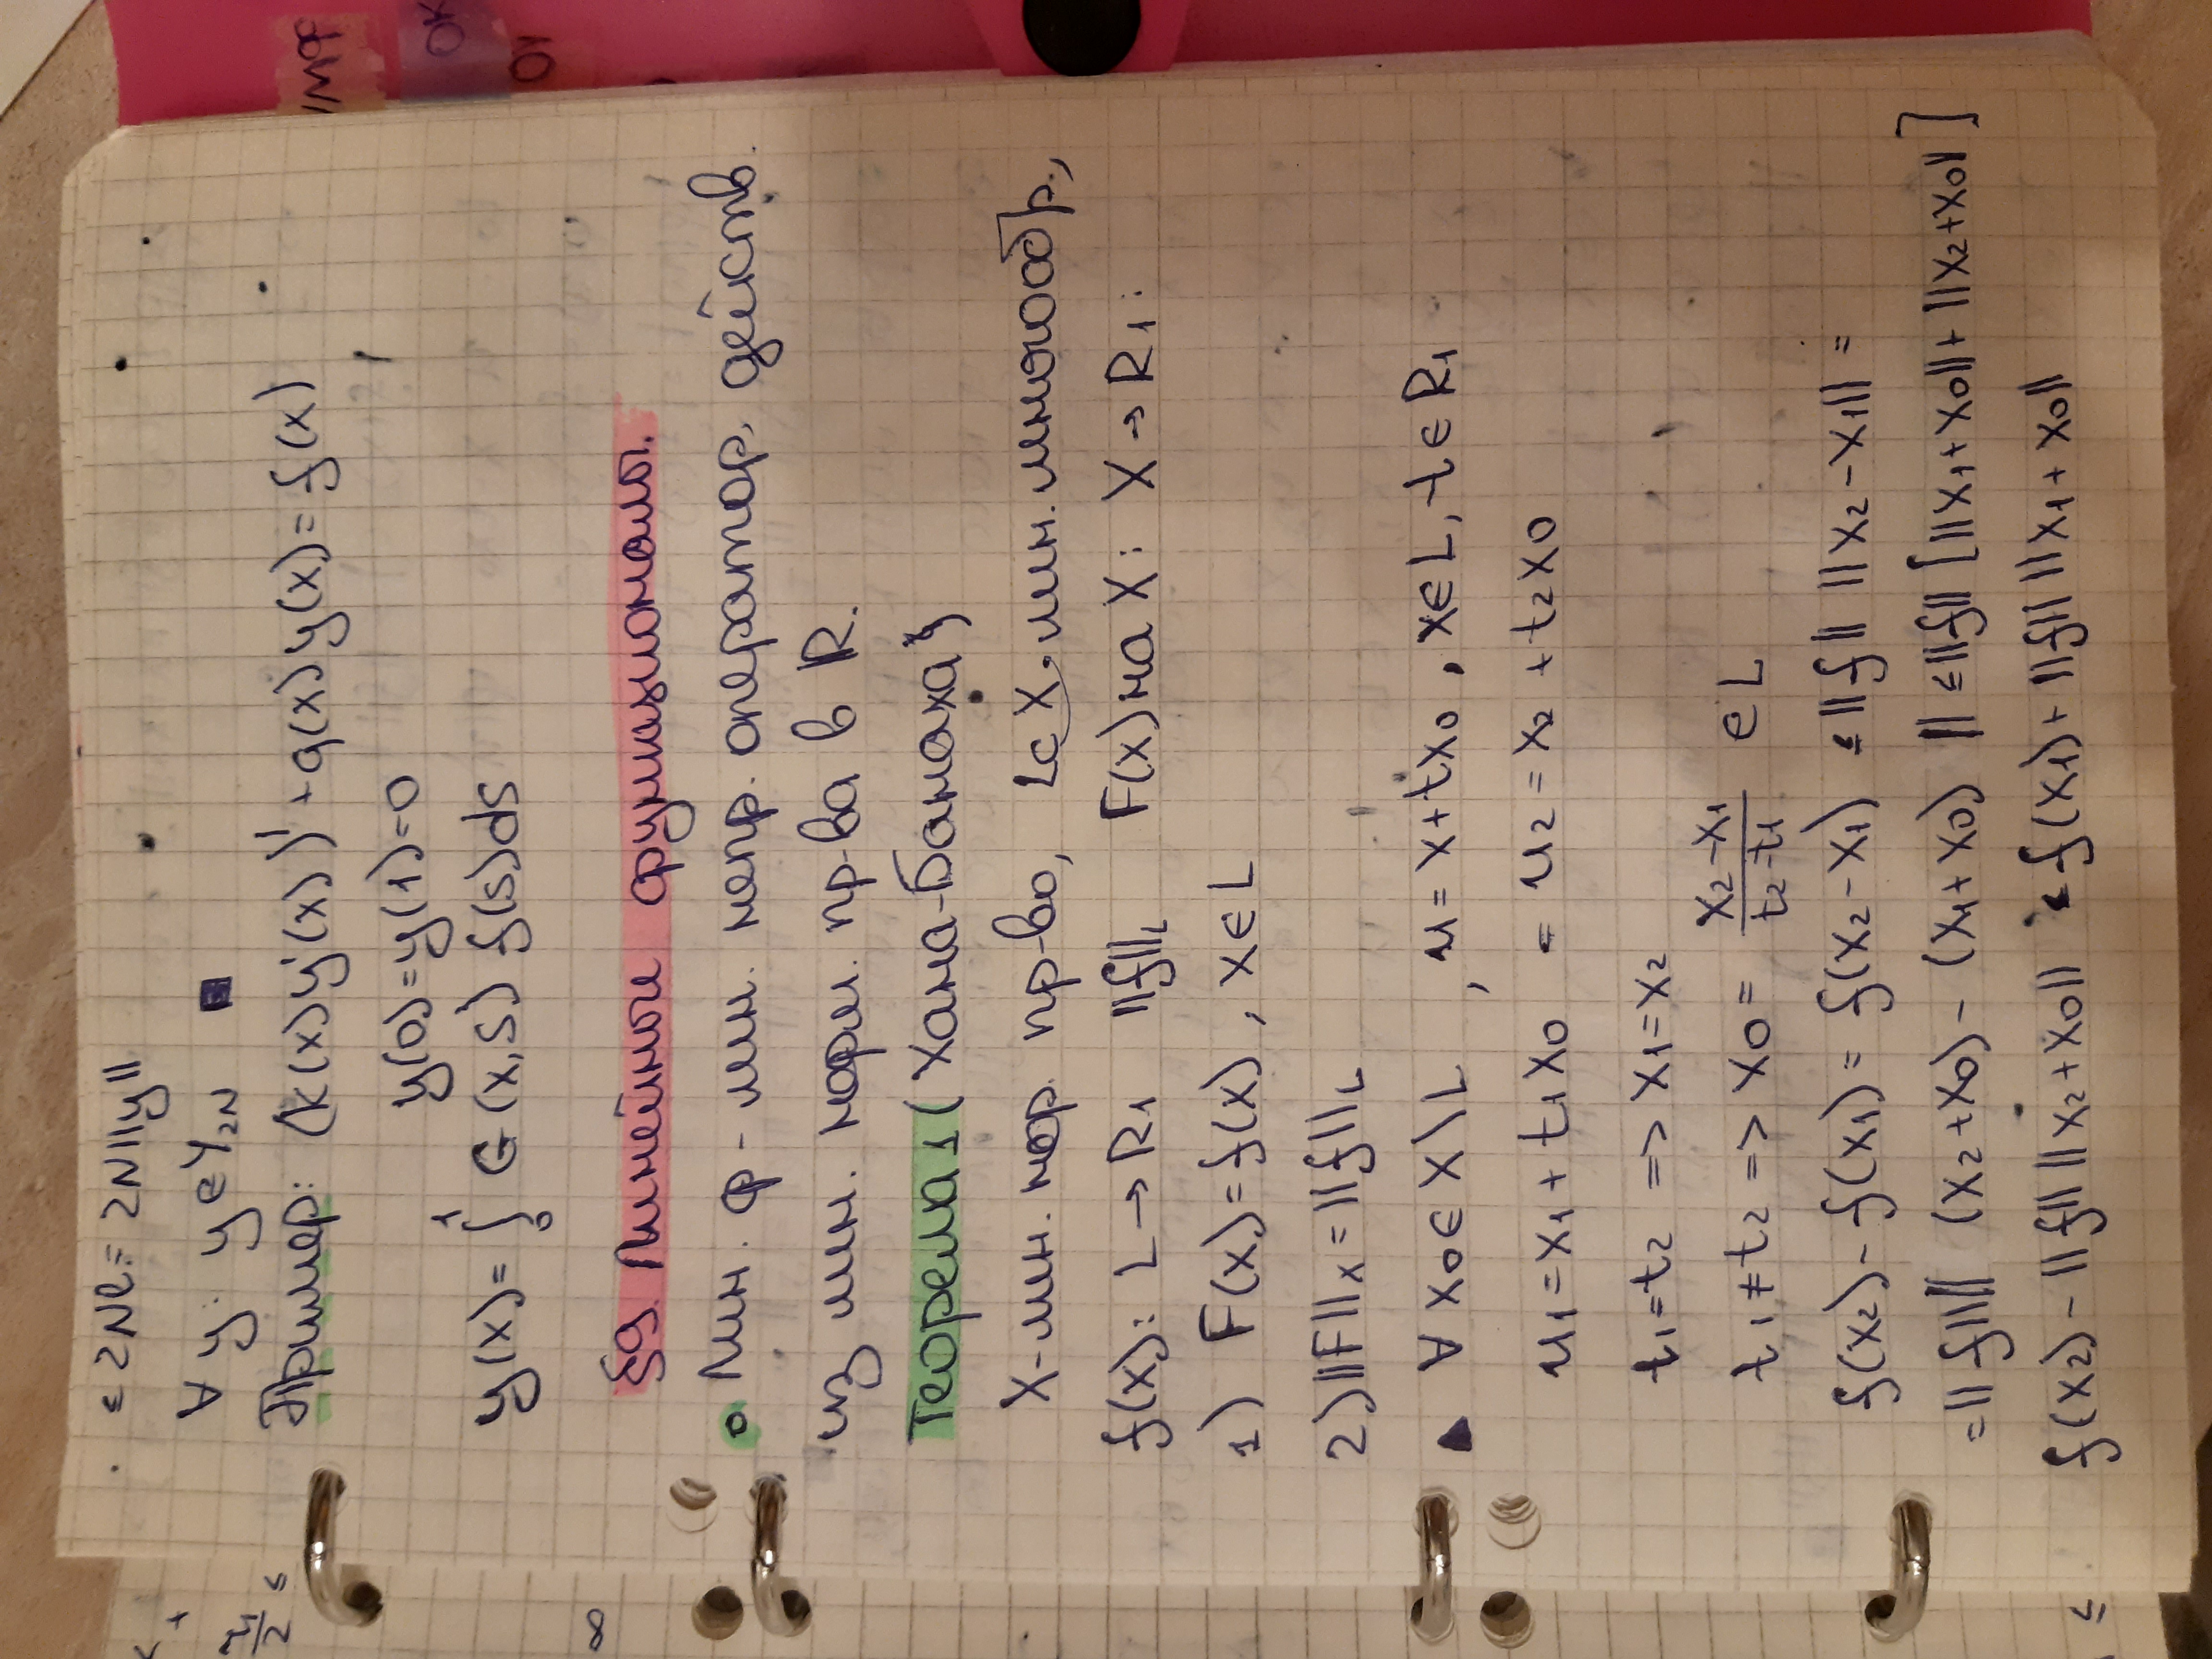 ≤ 2Nl = 2N||y||
∀ y: y ∈ Y₂N ■
Пример: (k(x)y'(x))' + q(x)y(x) = f(x)
y(0)=y(1)=0
y(x) = ∫₀¹ G(x,s) f(s)ds
§8. Линейные функционалы.
• Лин. ф- лин. непр. оператор, действ.
из лин. норм. пр-ва в R.
Теорема 1 (Хана-Банаха)
X-лин. нор. пр-во, L⊂X. лин. многообр.,
f(x): L→R₁ ||f||_L F(x) на X: X→R₁:
1) F(x)=f(x), x∈L
2) ||F||ₓ = ||f||_L
▲ ∀ x₀ ∈ X \ L , u = x+tx₀, x∈L, t∈R₁
u₁ = x₁ + t₁x₀ = u₂ = x₂ + t₂x₀
t₁=t₂ => x₁=x₂
t₁≠t₂ => x₀ = (x₂-x₁)/(t₂-t₁) ∈ L
f(x₂) - f(x₁) = f(x₂-x₁) ≤ ||f|| ||x₂-x₁|| =
= ||f|| || (x₂+x₀) - (x₁+x₀) || ≤ ||f|| [||x₁+x₀|| + ||x₂+x₀||]
f(x₂) - ||f|| ||x₂+x₀|| ≤ f(x₁) + ||f|| ||x₁+x₀||
УМФ
ОК
∞